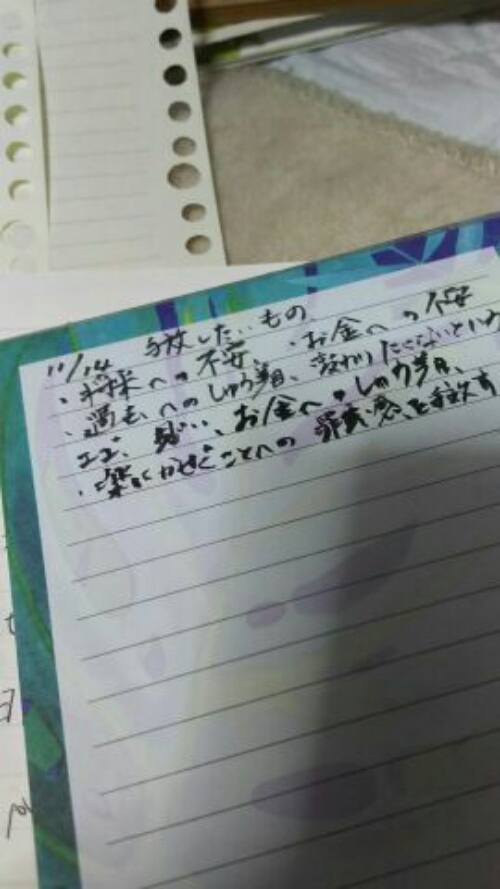 11/14 手放したいもの
・将来への不安、・お金への不安
・過去へのしゅう着、変わりたくないという
エゴ、
お金へのしゅう着、
・楽しくかせぐことへの罪悪感、を手放す